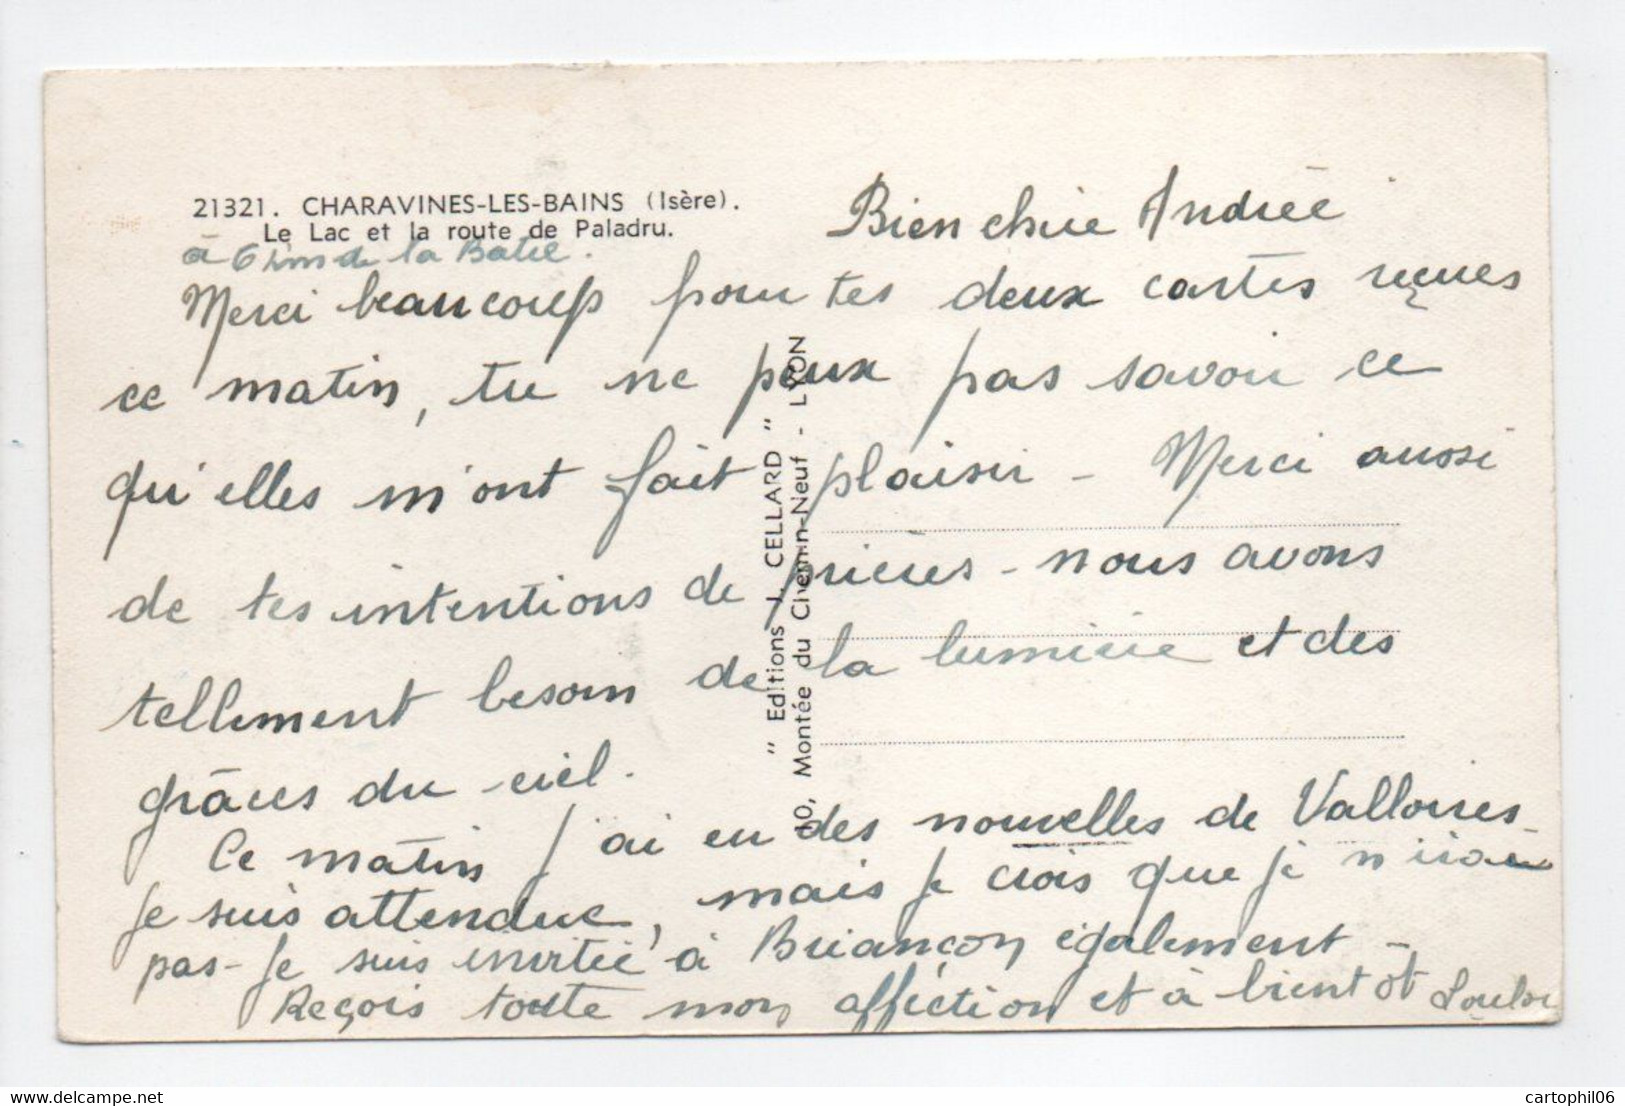 21321. CHARAVINES-LES-BAINS (Isère).
Le Lac et la route de Paladru.
à 6 km de la Batie.
Bien chère Andrée
Merci beaucoup pour tes deux cartes reçues
ce matin, tu ne peux pas savoir ce
qu'elles m'ont fait plaisir - Merci aussi
de tes intentions de prières - nous avons
tellement besoin de la lumière et des
grâces du ciel.
Ce matin j'ai eu des nouvelles de Valloires -
Je suis attendue, mais je crois que je n'irai
pas - Je suis invitée à Briançon également -
Reçois toute mon affection et à bientôt Loulou
" Editions J. CELLARD "
40, Montée du Chemin-Neuf - LYON
cartophil06